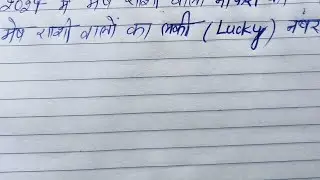 2024 में मेष राशी वालो
मेष राशी वालों का लकी (Lucky) नंबर